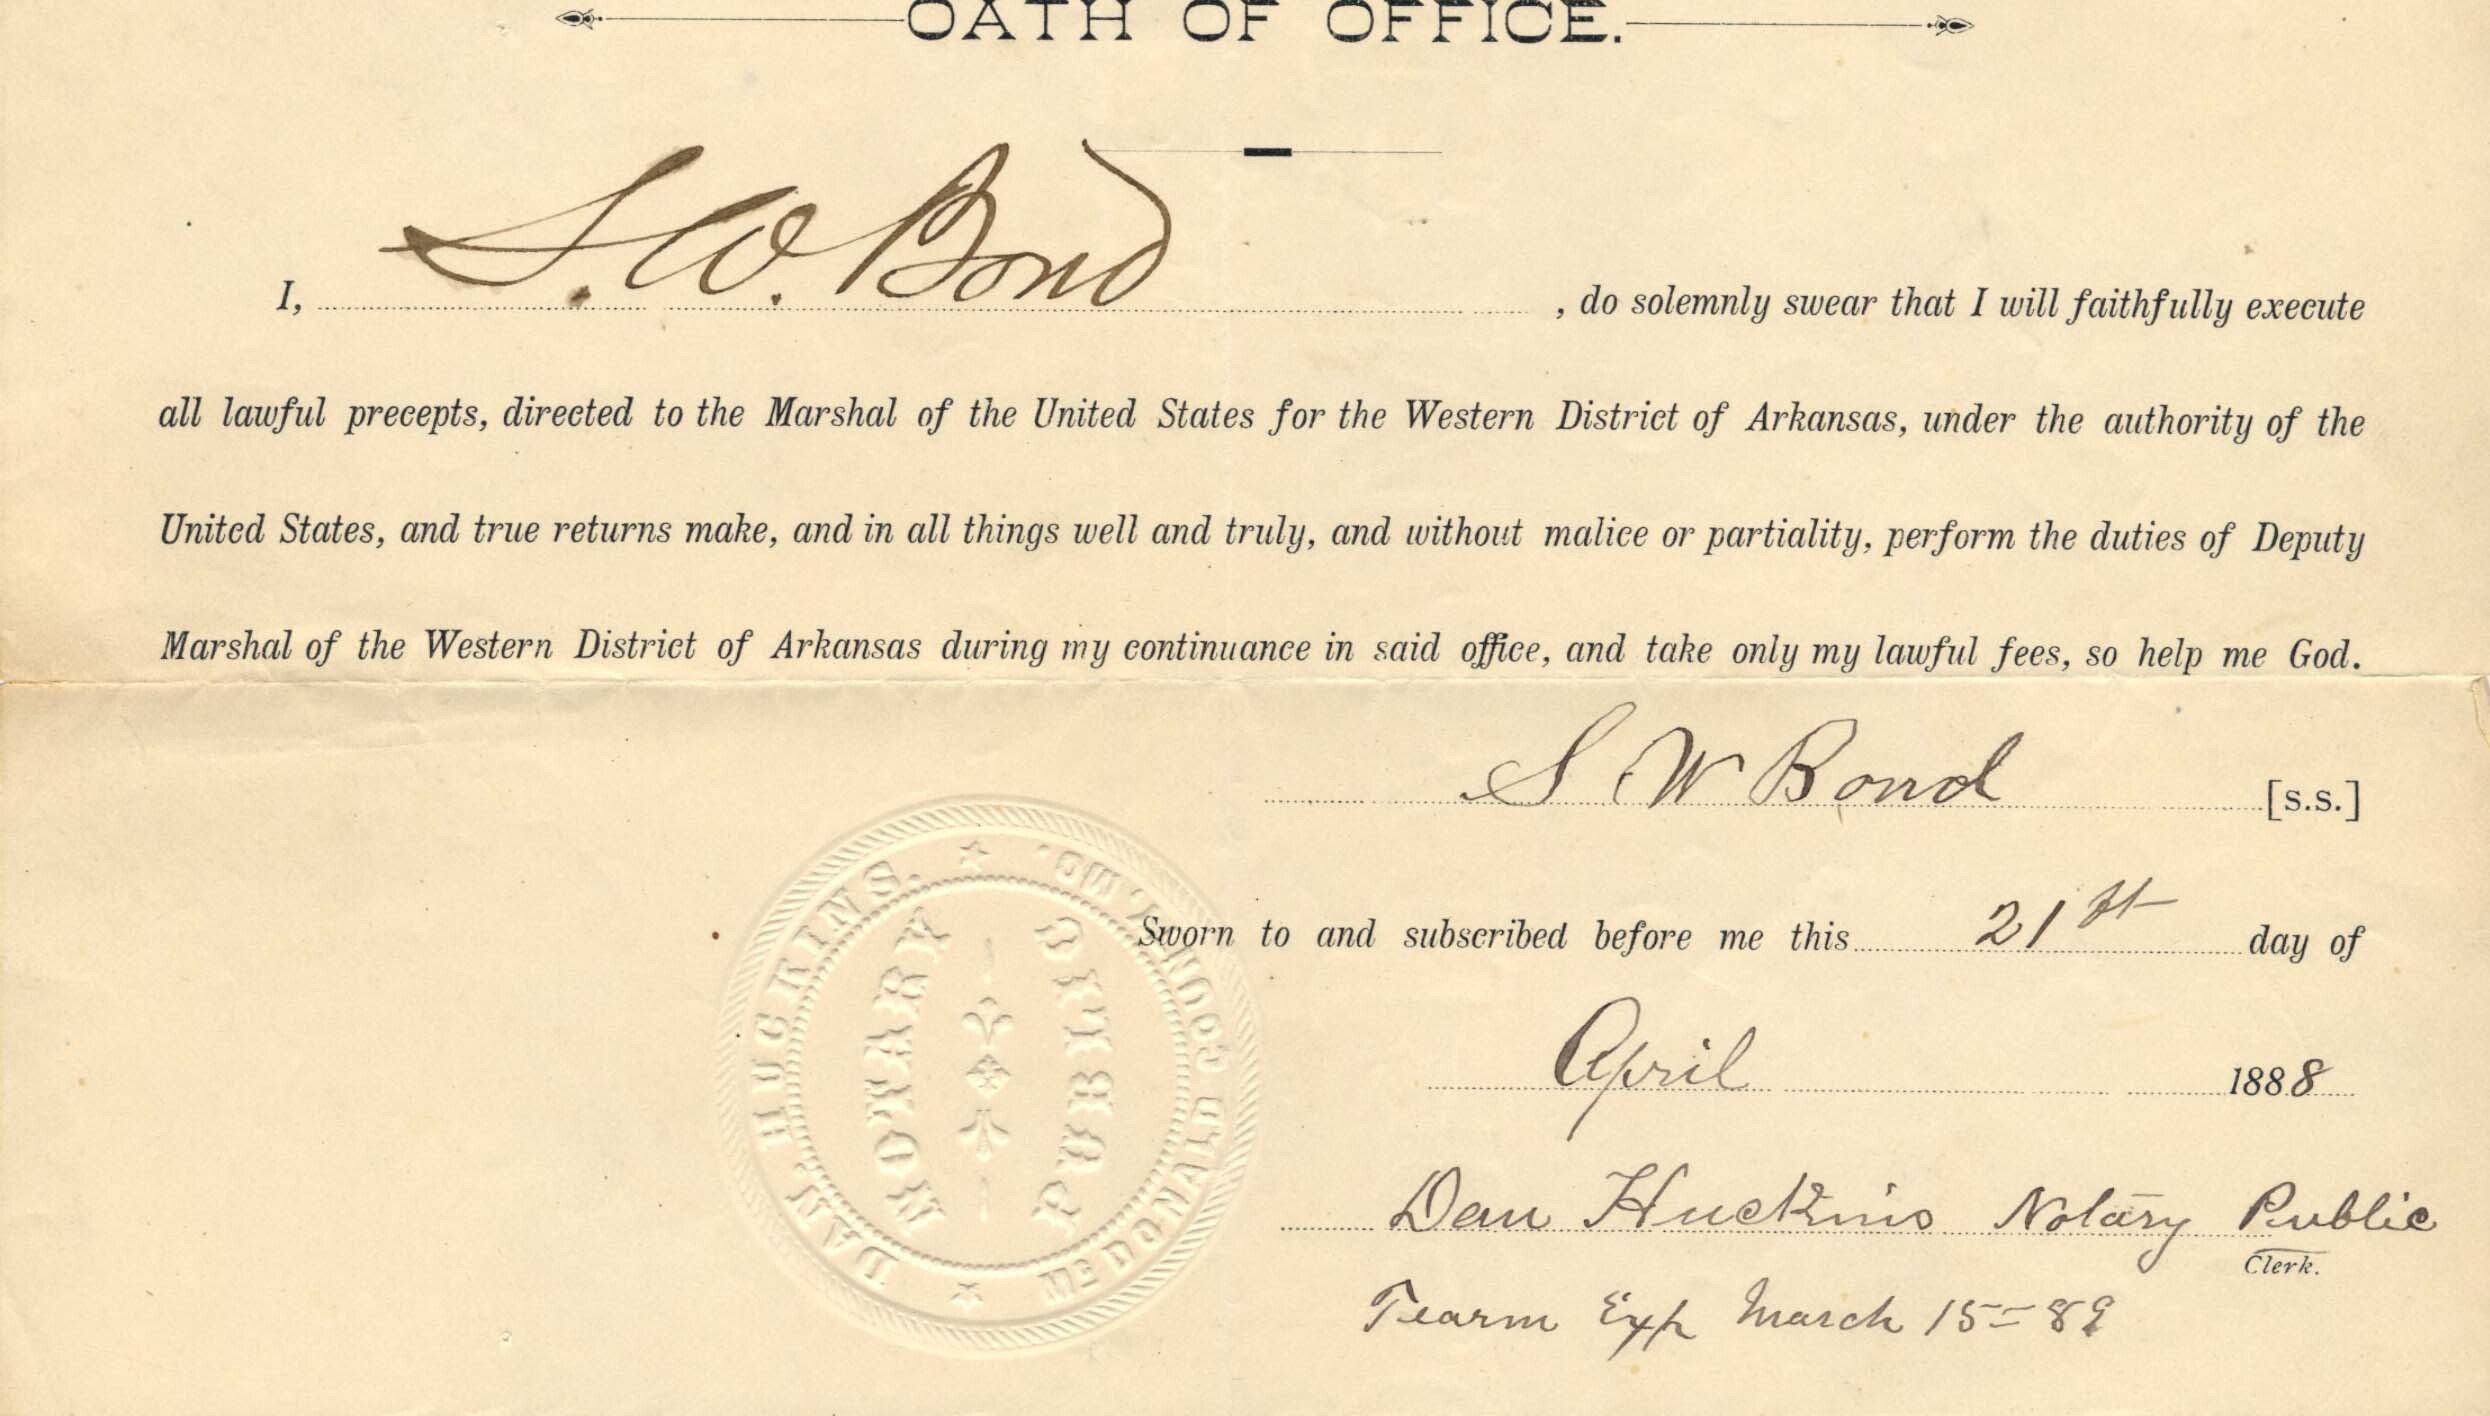 OATH OF OFFICE.
I, S. W. Bond , do solemnly swear that I will faithfully execute
all lawful precepts, directed to the Marshal of the United States for the Western District of Arkansas, under the authority of the
United States, and true returns make, and in all things well and truly, and without malice or partiality, perform the duties of Deputy
Marshal of the Western District of Arkansas during my continuance in said office, and take only my lawful fees, so help me God.
S W Bond [S.S.]
Sworn to and subscribed before me this 21st day of
April 1888
Dan Huckins Notary Public
Clerk.
Tearm Exp March 15=89
DAN. HUCKINS.
McDONALD COUNTY, MO.
NOTARY
PUBLIC